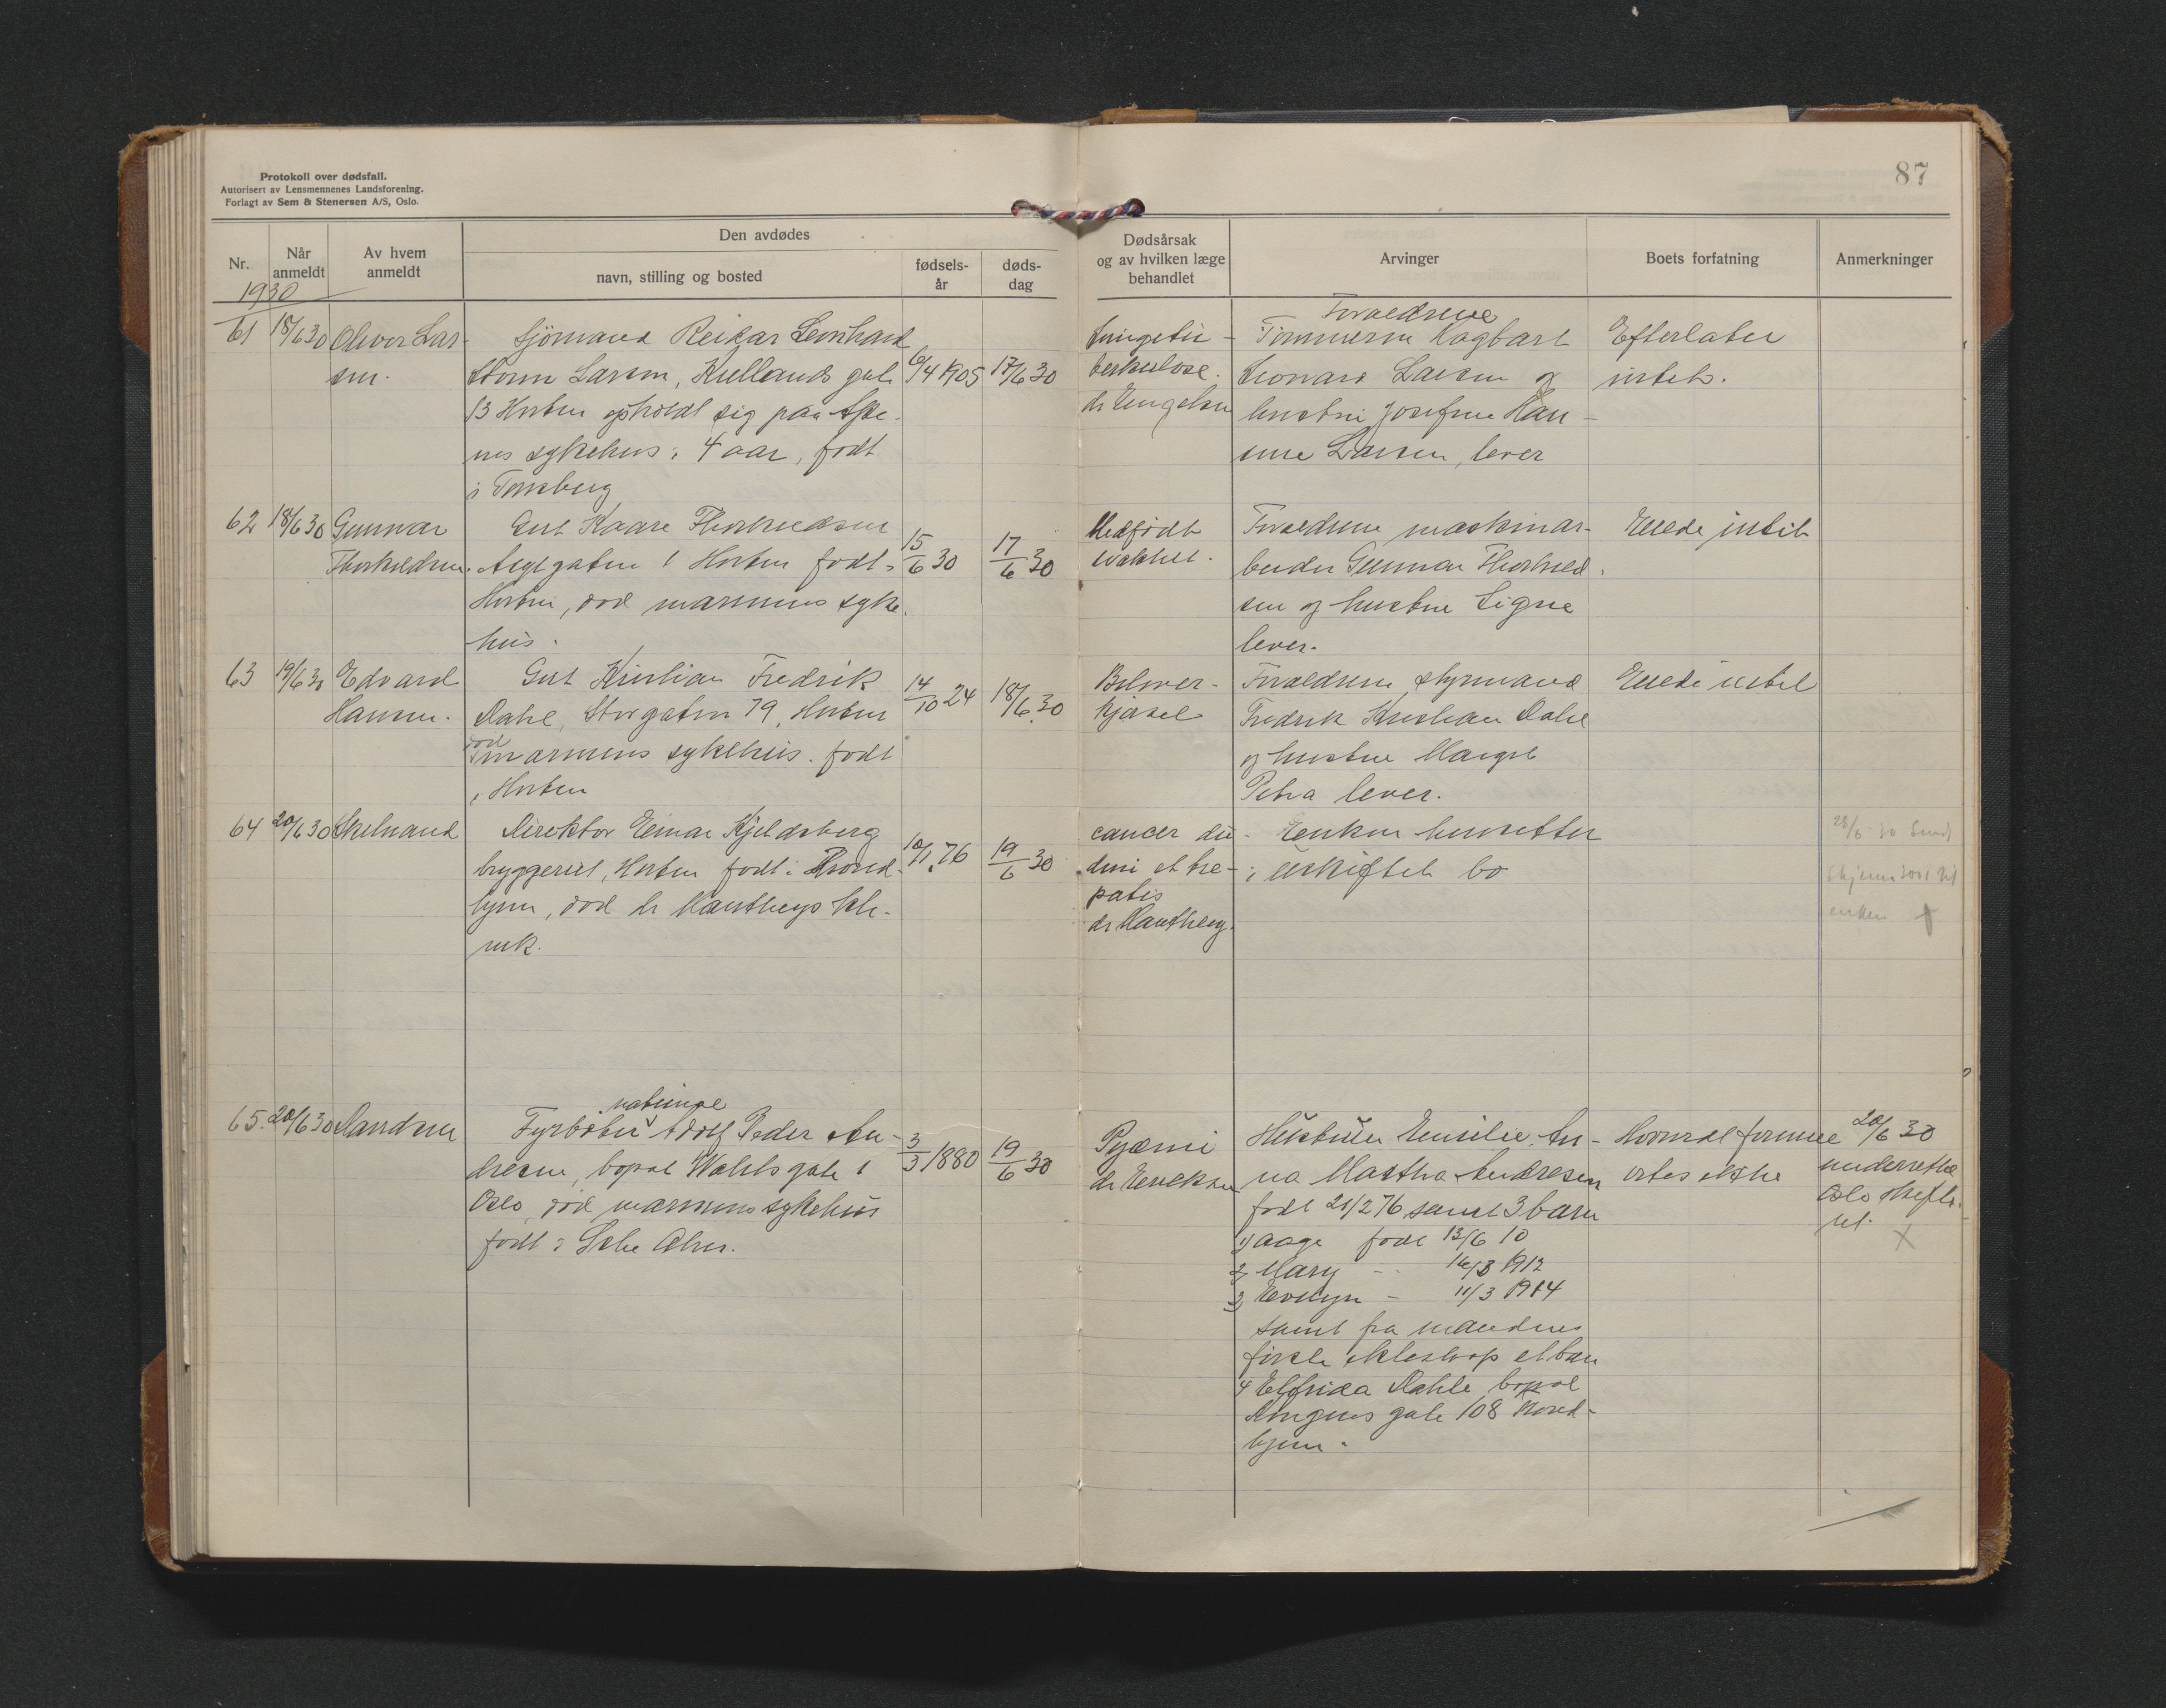 87
Protokoll over dødsfall.
Autorisert av Lensmennenes Landsforening.
Forlagt av Sem & Stenersen A/S, Oslo.
Nr.
Når anmeldt
Av hvem anmeldt
Den avdødes
navn, stilling og bosted
fødsels-år
døds-dag
Dødsårsak og av hvilken læge behandlet
Arvinger
Boets forfatning
Anmerkninger
1930
61
18/6 30
Oliver Lar-
sen.
Sjømand Reidar Leonhard
Storm Larsen, gate
13 Horten opholdt sig paa
nes sykehus i 4 aar, født
i Tønsberg
6/4 1905
17/6 30
Lungetu-
berkulose.
dr Engelsen
Forældrene
Tømmerm Hagbart
Leonard Larsen og
hustru Josefine Han-
sine Larsen, lever
Efterlater
intet.
62
18/6 30
Gunnar
Thorkildsen.
Gut Kaare Thorkildsen
gaten 1 Horten født i
Horten, død marinens syke-
hus.
15/6 30
17/6 30
Medfødt
svakhet.
Forældrene maskinar-
beider Gunnar Thorkild-
sen og hustru Signe
lever.
Eiede intet
63
19/6 30
Edvard
Hansen.
Gut Kristian Fredrik
Dahl, Storgaten 79, Horten
død
marinens sykehus. født
i Horten
14/10 24
18/6 30
Bilover-
kjørsel
Forældrene styrmand
Fredrik Kristian Dahl
og hustru Margit
Petra lever.
Eiede intet
64
20/6 30
Skelnand
Direktør Einar Kjeldsberg
bryggeriet, Horten født i Trond-
hjem, død dr Kli-
nik.
10/1 76
19/6 30
cancer duo-
deni et he-
patis
dr
Enken hensitter
i uskiftet bo
28/6 30 Sendt
skjema til
enken
65.
20/6 30
natinype
Fyrbøter Adolf Peder An-
dresen, bopæl Wahls gate 1
Oslo, død marinens sykehus
født i Aker.
3/3 1880
19/6 30
Pyæmi
dr Eriksen
Hustruen Emilie An-
na Martha Andresen
født 21/2 76 samt 3 barn
1) Aage født 13/6 10
2) Mary - 16/3 1912
3) Evelyn - 11/3 1914
samt fra mandens
første ekteskap et barn
4 Elfrida Dahle bopæl
gate 108 Trond-
hjem.
Hvorvidt formue
vites ikke
20/6 30
underrettet
Oslo skifte-
ret.